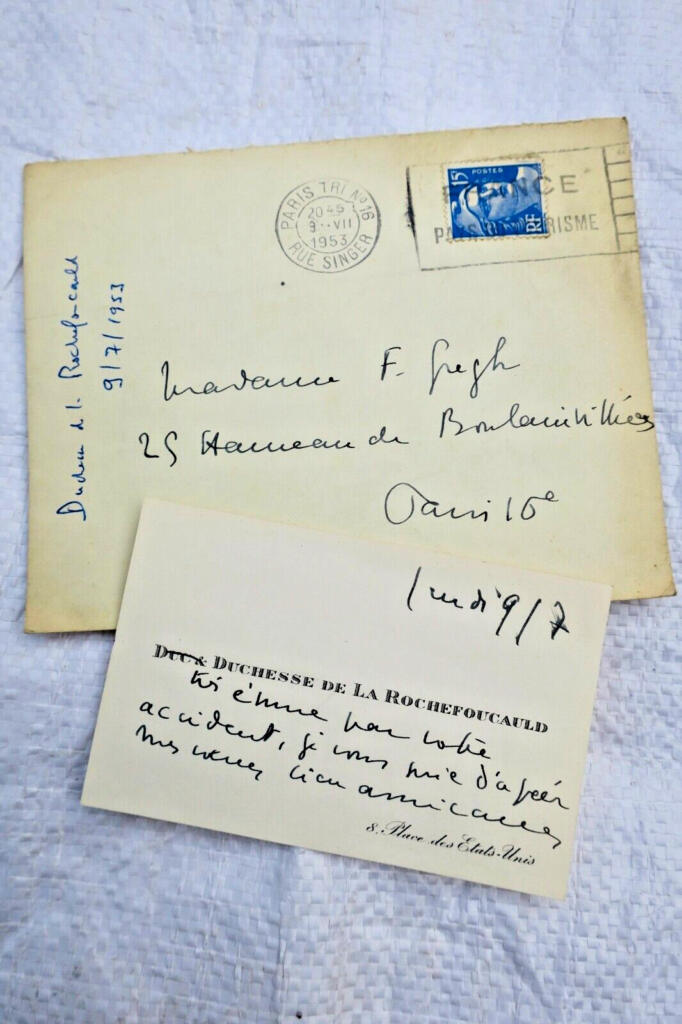 PARIS TRI Nº 16
2045
9-VII
1953
RUE SINGER
15 POSTES
RF
FRANCE
PAYS DU TOURISME
Duchesse de la Rochefoucauld
9/7/1953
Madame F. Gregh
25 Hameau de Boulainvilliers
Paris 16e
lundi 9/7
DUC & DUCHESSE DE LA ROCHEFOUCAULD
très émue par votre
accident, je vous prie d'agréer
mes vœux bien amicaux
8. Place des Etats-Unis